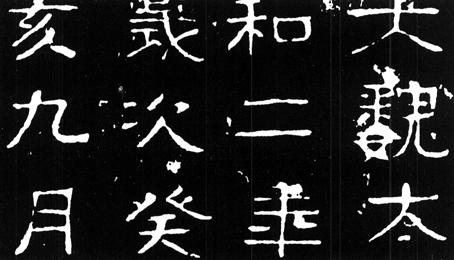 大魏太
和二年
歲次癸
亥九月